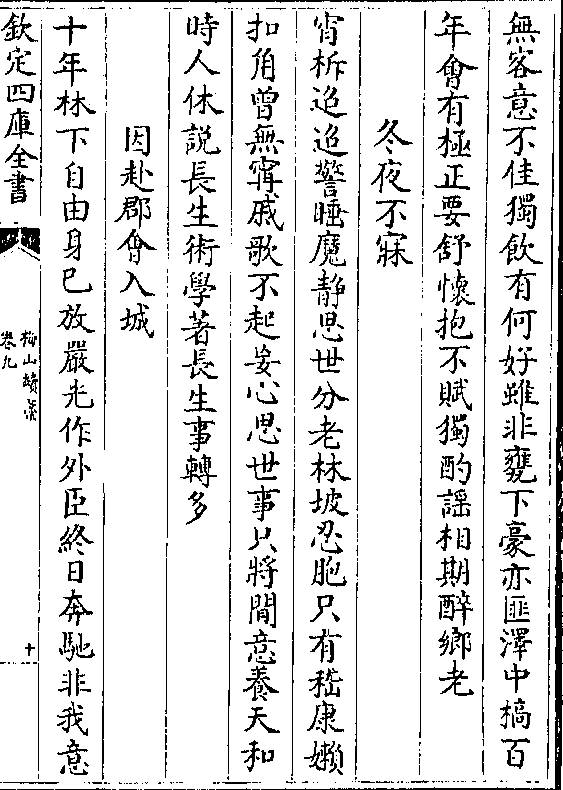 無客意不佳獨飲有何好雖非甕下豪亦匪澤中槁百
年會有極正要舒懷抱不賦獨酌謡相期醉鄉老
冬夜不寐
宵柝迢迢警睡魔静思世分老林坡忍胞只有嵇康嬾
扣角曾無甯戚歌不起妄心思世事只將閒意養天和
時人休説長生術學著長生事轉多
因赴郡會入城
十年林下自由身已放嚴光作外臣終日奔馳非我意
欽定四庫全書
梅山續藁
卷九
十